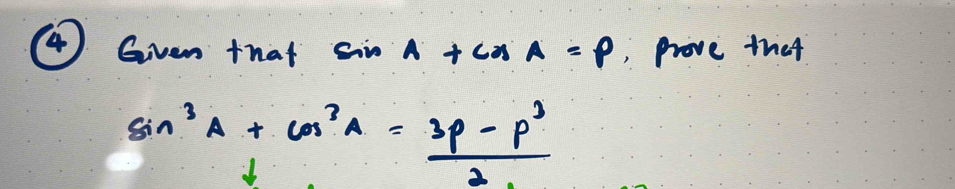 ④ Given that sin A + cos A = p, prove that
sin³ A + cos³ A = 3p - p³
2